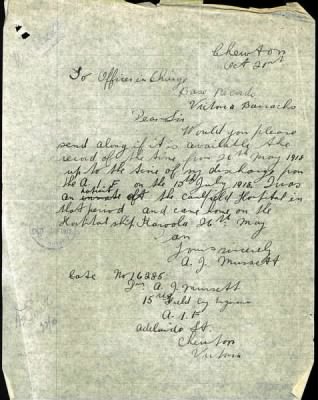 Chewton
Oct 20th
To Officer in Charge
Base Records
Victoria Barracks
Dear Sir
Would you please
send along if it is available the
record of the time from 26th May 1918
up to the time of my discharge from
the A. I. F. on the 15th July 1918. I was
an inmate of the Caulfield Hospital in
patient
that period and came home on the
Hospital ship Karoola 26th May
I am
yours sincerely
A. J. Mursett
late No 16285
A. J. Mursett
15 Field Coy Engineers
A. I. F
Adelaide St.
Chewton
Victoria